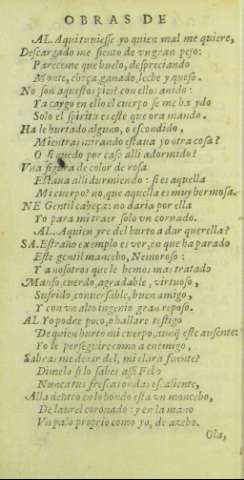 OBRAS DE
AL. Aqui tuuiesse yo quien mal me quiere,
Descargado me siento de vn gran peso:
Pareceme que buelo, despreciando
Monte, choça, ganado, leche y queso.
No son aquestos pies? con ellos ando:
Ya caygo en ello el cuerpo se me ha ydo
Solo el spiritu es este que ora mando.
Ha le hurtado alguno, o escondido,
Mientras mirando estaua yo otra cosa?
O si quedo por caso alli adormido?
Vna figura de color de rosa
Estaua alli durmiendo: si es aquella
Mi cuerpo? no, que aquella es muy hermosa.
NE Gentil cabeça: no daria por ella
Yo para mi traer solo vn cornado.
AL. A quien yre del hurto a dar querella?
SA. Estraño exemplo es ver, en que ha parado
Este gentil mancebo, Nemoroso:
Y a nosotros que le hemos mas tratado
Manso, cuerdo, agradable, virtuoso,
Sufrido, conuersable, buen amigo,
Y con vn alto ingenio gran reposo.
AL Yo podre poco, o hallare testigo
De quien hurto mi cuerpo, aunq̃ esté ausente:
Yo le perseguire como a enemigo,
Sabras me dezir del, mi clara fuente?
Dimelo si lo sabes assi Febo
Nunca tus frescas ondas escaliente,
Alla dentro en lo hondo esta vn moncebo,
De laurel coronado: y en la mano
Vn palo proprio como yo, de azebo.
Ola,